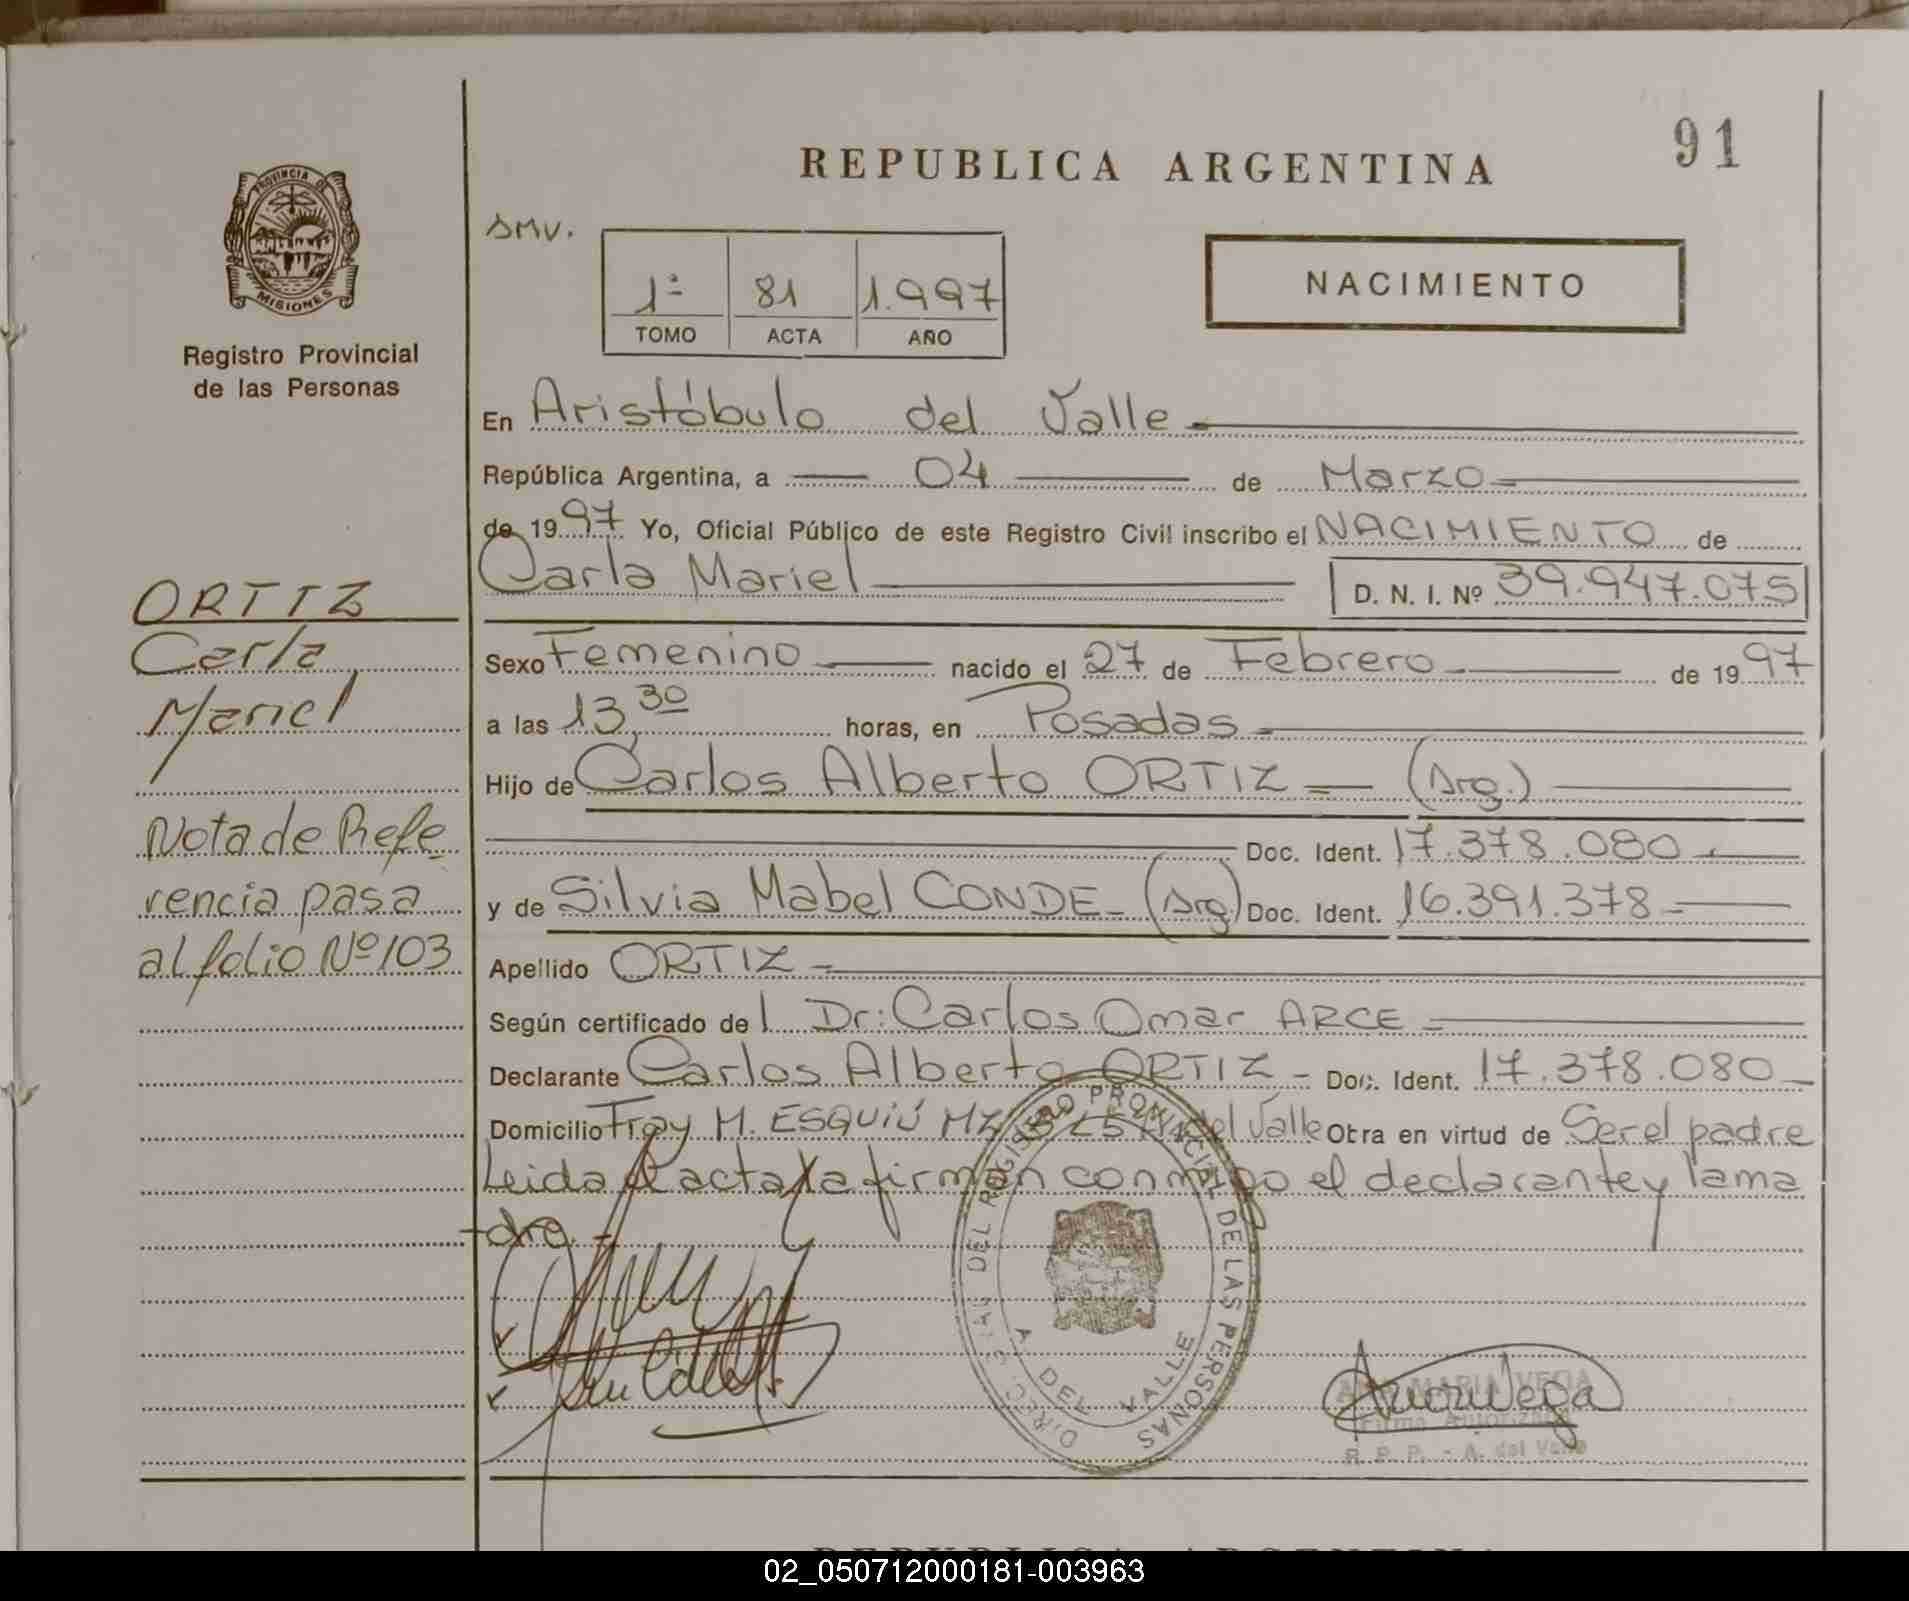 REPUBLICA ARGENTINA
91
PROVINCIA DE
MISIONES
Registro Provincial
de las Personas
SMV.
1º 81 1.997
TOMO ACTA AÑO
NACIMIENTO
En Aristóbulo del Valle
República Argentina, a 04 de Marzo
de 1997 Yo, Oficial Público de este Registro Civil inscribo el NACIMIENTO de
Carla Mariel D. N. I. Nº 39.947.075
ORTIZ
Carla
Mariel
Sexo Femenino nacido el 27 de Febrero de 1997
a las 13,30 horas, en Posadas
Hijo de Carlos Alberto ORTIZ (Arg.)
Doc. Ident. 17.378.080
y de Silvia Mabel CONDE (Arg) Doc. Ident. 16.391.378
Nota de Refe
rencia pasa
al folio Nº 103
Apellido ORTIZ
Según certificado del Dr: Carlos Omar ARCE
Declarante Carlos Alberto ORTIZ - Doc. Ident. 17.378.080
Domicilio Fray M. ESQUIÚ MZ del Valle Otra en virtud de Ser el padre
Leida el acta la firman conmigo el declarante y la ma
dre.
DIRECC. GRAL. DEL REGISTRO PROVINCIAL DE LAS PERSONAS
A. DEL VALLE
ANA MARIA VEGA
Firma Autorizada
R. P. P. - A. del Valle
REPUBLICA ARGENTINA
02_050712000181-003963